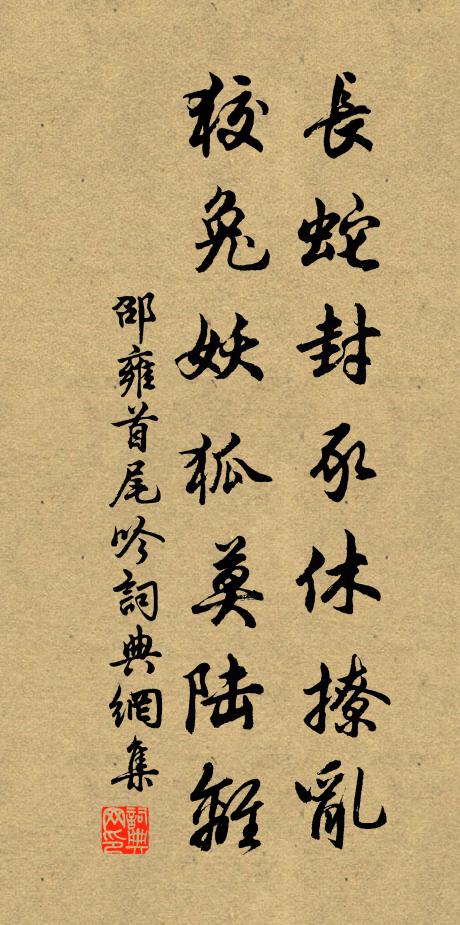 長蛇封豕休撩亂
狡兔妖狐莫陆離
邵雍首尾吟詞典網集
詞典网印